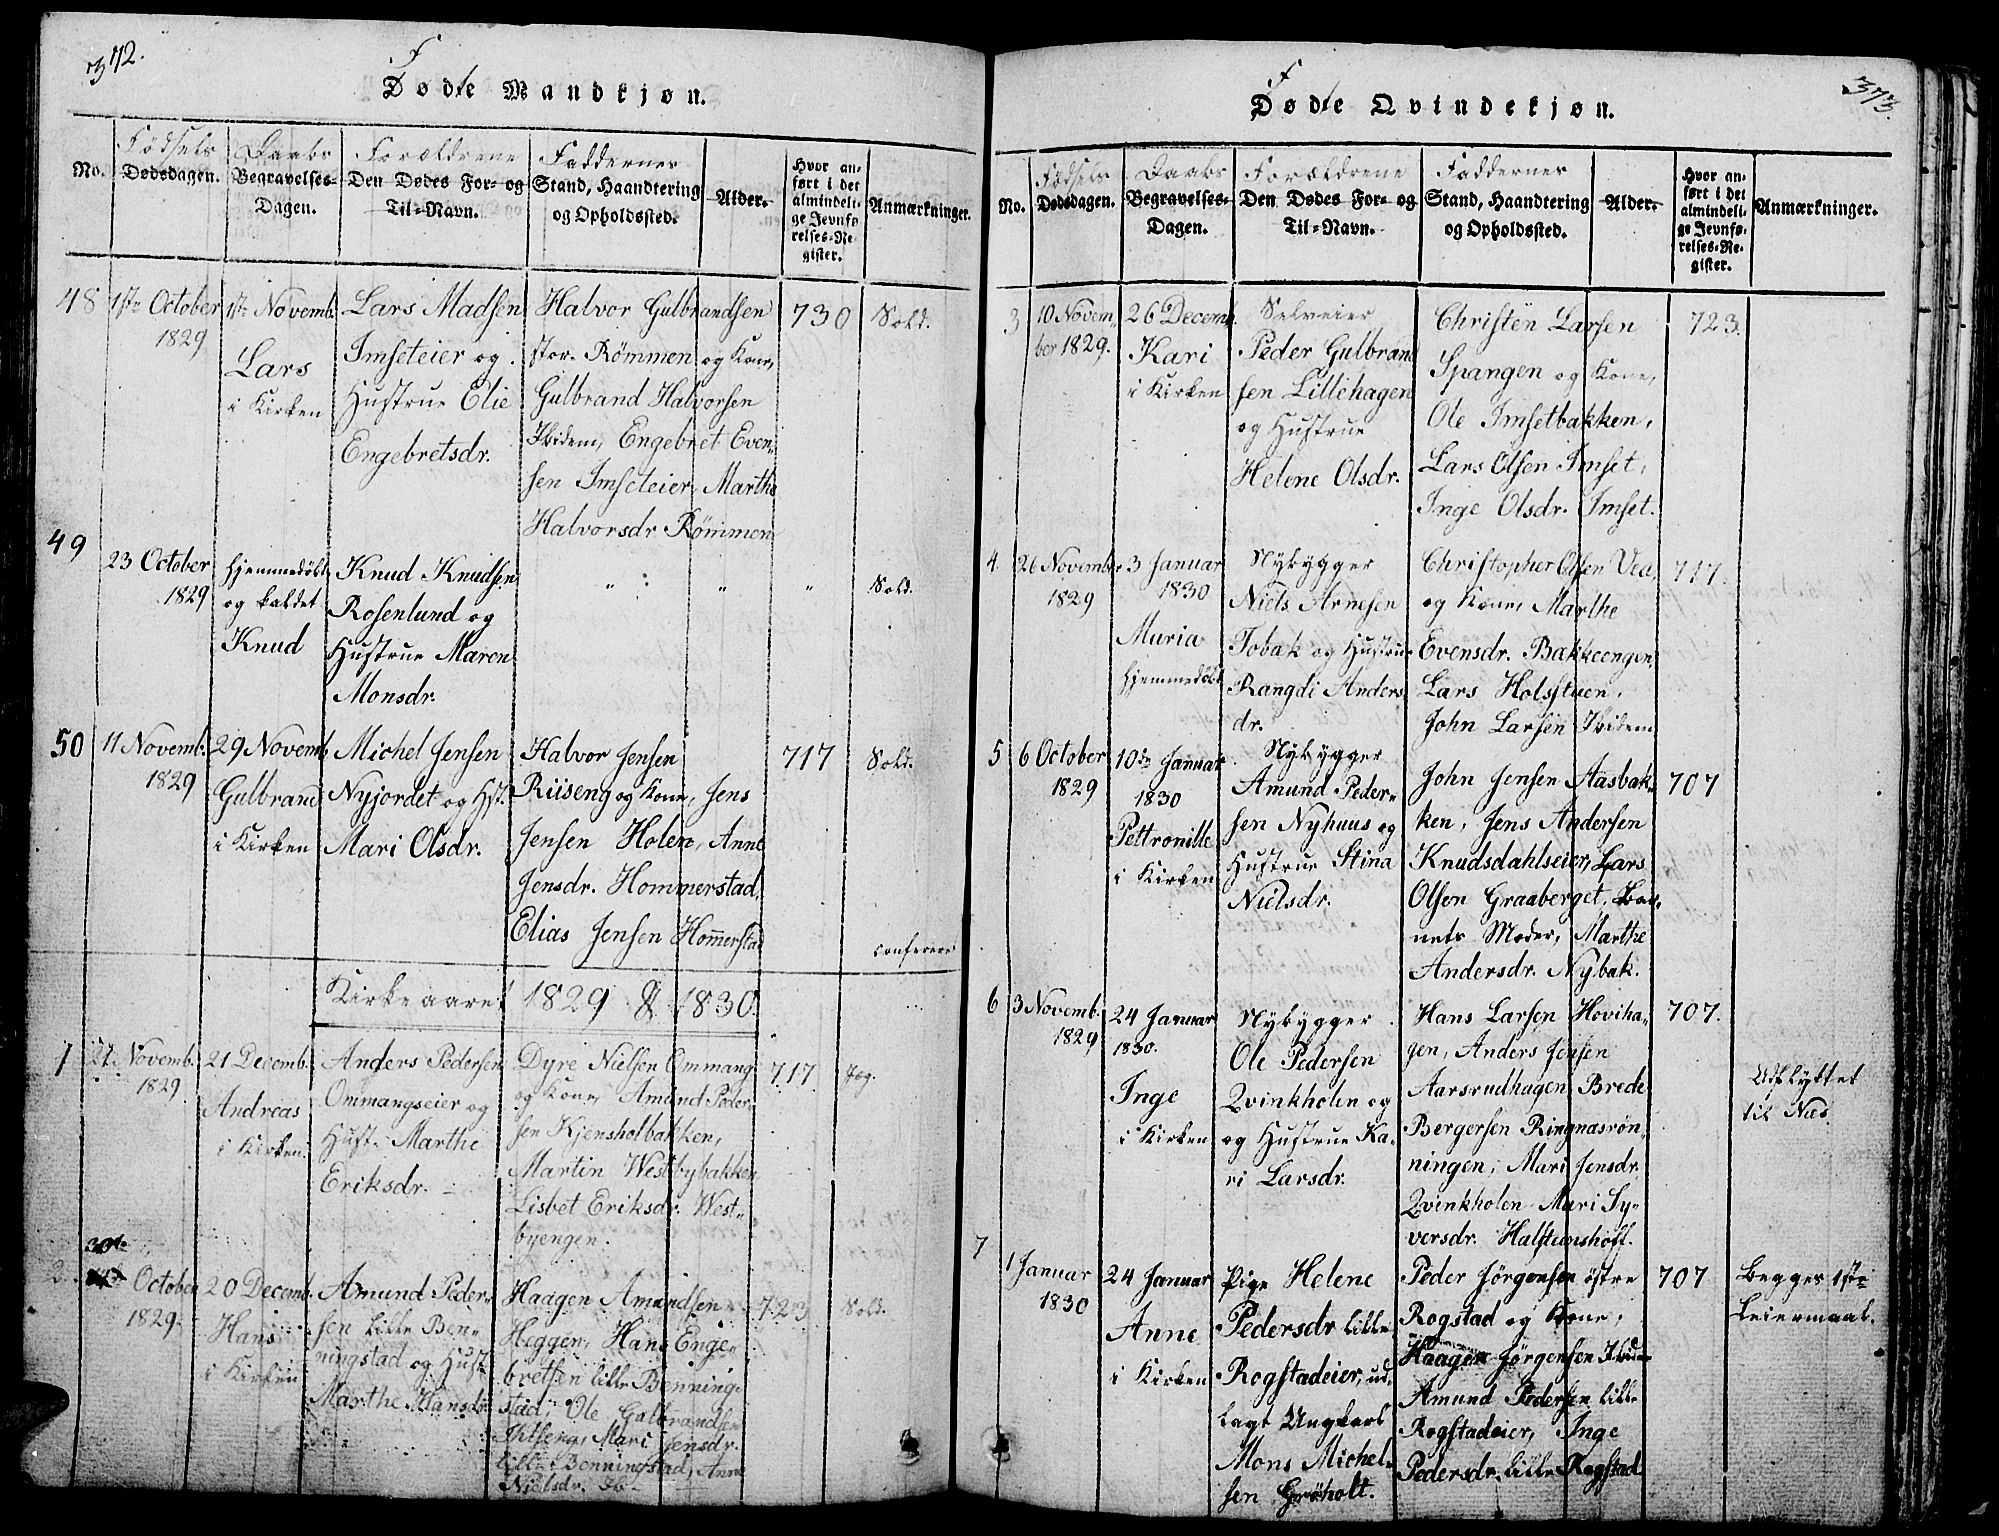 372.
F
Dødte Mandkjøn.
No.
Fødsels
Dødsdagen.
Daabs
Begravelses-
Dagen.
Forældrene
Den Dødes For- og
Til-Navn.
Faddernes
Stand, Haandtering
og Opholdssted.
Alder.
Hvor an-
ført i det
almindeli-
ge Jevnfø-
relses-Re-
gister.
Anmærkninger.
48
1ste October
1829
1ste Novemb.
Lars
i Kirken
Lars Madsen
Imseteier og
Hustrue Elie
Engebretsdr.
Halvor Gulbrandsen
stor. Rømmen og Kone,
Gulbrand Halvorsen
Ibidem, Engebret Even-
sen Imseteier, Marthe
Halvorsdr Rømmen
730
Sold.
49
23 October
1829
hjemmedøbt
og kaldet
Knud
Knud Knudsen
Rosenlund og
Hustrue Maren
Monsdr.
" " "
Sold.
50
11 Novemb.
1829
29 Novemb
Gulbrand
i Kirken
Michel Jensen
Nyjordet og Hst.
Mari Olsdr.
Halvor Jensen
Riiseng og Kone, Jens
Jensen Holen, Anne
Jensdr. Hommerstad,
Elias Jensen Hom̄erstad
717
Sold.
confereret
Kirkeaaret 1829 & 1830.
1
27 Novemb.
1829
21 Decemb.
Andreas
i Kirken
Anders Pedersen
Ommangseier og
Hust. Marthe
Eriksdr.
Dyre Nielsen Ommang
og Kone, Amund Peder-
sen Kjensholbakken,
Martin Westbybakken
Lisbet Eriksdr. West-
byengen.
717
Jæg.
2.
30te
October
1829
20 Decemb.
Hans
i Kirken
Amund Peder-
sen lille Ben-
ningstad og Hust.
Marthe Hansdr.
Haagen Amundsen
Heggen, Hans Enge-
bretsen lille Benning-
stad, Ole Gulbrandsen
Mari Jensdr.
lille Benningstad, Anne
Nielsdr. Ib-
723
Sold.
373.
F
Dødte Qvindekjøn.
No.
Fødsels
Dødsdagen.
Daabs
Begravelses-
Dagen.
Forældrene
Den Dødes For- og
Til-Navn.
Faddernes
Stand, Haandtering
og Opholdssted.
Alder.
Hvor an-
ført i det
almindeli-
ge Jevnfø-
relses-Re-
gister.
Anmærkninger.
3
10 Novem-
ber 1829.
26 Decemb.
Kari
i Kirken
Selveier
Peder Gulbrand
sen Lillehagen
og Hustrue
Helene Olsdr.
Christen Larsen
Spangen og Kone,
Ole Imsetbakken,
Lars Olsen Imset,
Inge Olsdr. Imset.
723.
4
26 November
1829
3 Januar
1830
Maria
hjemmedøbt
Nybygger
Niels Arnesen
Tobak og Hustrue
Rangdi Anders
dr.
Christopher Olsen Vea,
og Kone, Marthe
Evensdr. Bakkeengen,
Lars Holsstuen,
John Larsen Ibidem
717.
5
6 October
1829
10de Januar
1830
Pettronille
i Kirken
Nybygger
Amund Peder-
sen Nyhuus og
Hustrue Stina
Nielsdr.
John Jensen Aasbak-
ken, Jens Andersen
Knudsdahlseier, Lars
Olsen Graaberget, Bar-
nets Moder, Marthe
Andersdr. Nybak.
707
6
3 Novemb.
1829
24 Januar
1830.
Inge
i Kirken
Nybygger
Ole Pedersen
Qvinkholen og
og Hustrue Ka-
ri Larsdr.
Hans Larsen Hoviha-
gen, Anders Jensen
Aarsrudhagen Brede
Bergersen Ringnasrøn-
ningen, Mari Jensdr
Qvinkholen Mari Sy-
versdr. Halstenshoff.
707.
Udflyttet
til Næs
7
1 Januar
1830
24 Januar
Anne
i Kirken
Pige Helene
Pedersdr lille
Rogstadeier, ud-
lagt Ungkarl
Mons Michel-
sen Grøholt.
Peder Jørgensen østre
Rogstad og Kone,
Haagen Jørgensen Ibid-
Amund Pedersen lille
Rogstadeier, Inge
Pedersdr. lille Rogstad
707
Begges 1ste
Leiermaal.